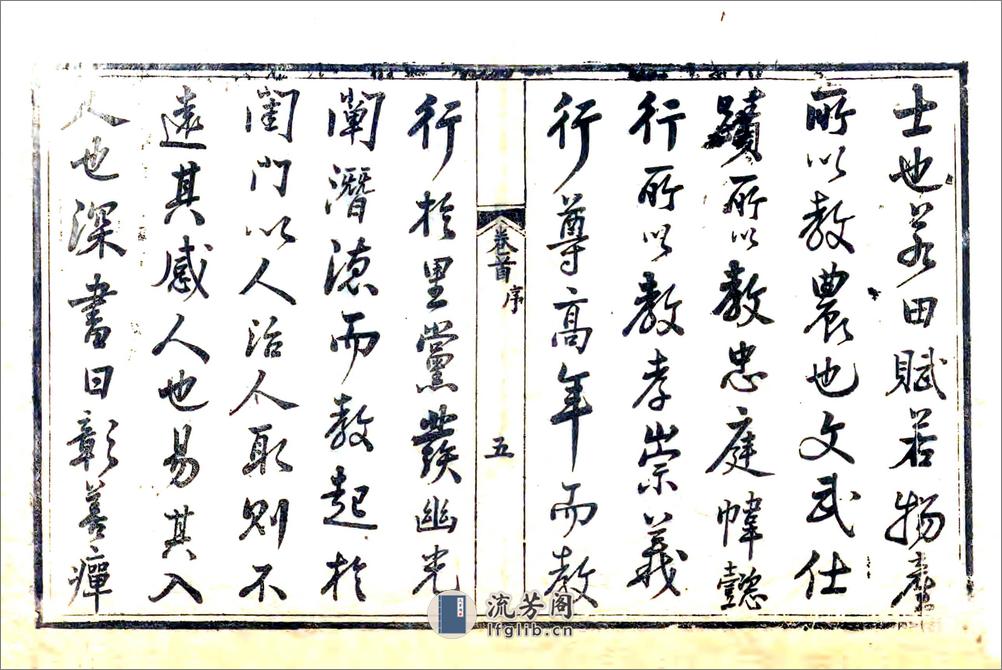 士也若田賦若物產
所以教農也文武仕
蹟所以教忠庭幃懿
行所以教孝崇義
行尊高年而教
卷首 序
五
行於里黨發幽光
闡潛德而教起於
閨門以人治人取則不
遠其感人也易其入
人也深書曰彰善癉
流芳阁
lfglib.cn